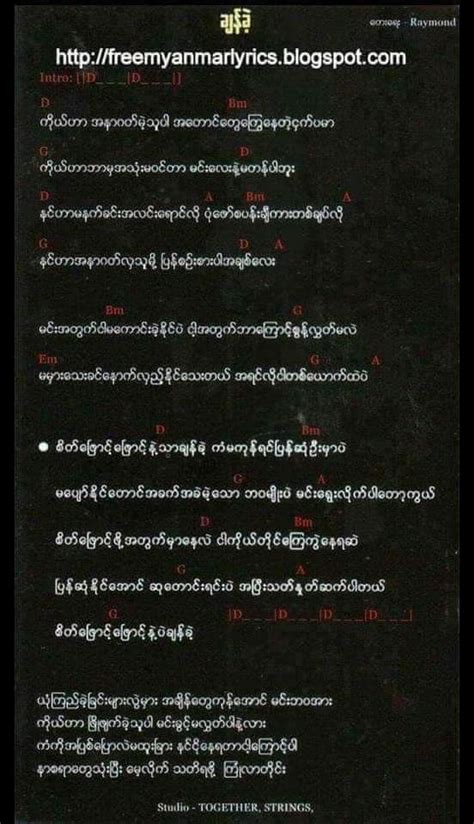 ချန်ခဲ့
တေးရေး - Raymond
http://freemyanmarlyrics.blogspot.com
Intro: [|D_ _ _|D_ _ _|]
D Bm
ကိုယ်ဟာ အနာဂတ်မဲ့သူပါ အတောင်တွေကြွေနေတဲ့ငှက်ပမာ
G D
ကိုယ်ဟာဘာမှအသုံးမဝင်တာ မင်းလေးနဲ့မတန်ပါဘူး
D A Bm A
နင်ဟာမနက်ခင်းအလင်းရောင်လို ပုံဖော်စပန်းချီကားတစ်ချပ်လို
G D A
နင်ဟာအနာဂတ်လှသူမို့ ပြန်စဉ်းစားပါအချစ်လေး
Bm G
မင်းအတွက်ငါမကောင်းခဲ့နိုင်ပဲ ငါ့အတွက်ဘာကြောင့်စွန့်လွှတ်မလဲ
Em G A
မမှားသေးခင်နောက်လှည့်နိုင်သေးတယ် အရင်လိုငါတစ်ယောက်ထဲပဲ
D Bm
● စိတ်ဖြောင့်ဖြောင့်နဲ့သာချန်ခဲ့ ကံမကုန်ရင်ပြန်ဆုံဦးမှာပဲ
G A
မပျော်နိုင်တောင်အခက်အခဲမဲ့သော ဘဝမျိုးပဲ မင်းရွေးလိုက်ပါတော့ကွယ်
D Bm
စိတ်ဖြောင့်ဖို့အတွက်မှာနေလဲ ငါကိုယ်တိုင်ကြေကွဲနေရဆဲ
G A
ပြန်ဆုံနိုင်အောင် ဆုတောင်းရင်းပဲ အပြီးသတ်နှုတ်ဆက်ပါတယ်
G |D_ _ _|D_ _ _|D_ _ _|D_ _ _|
စိတ်ဖြောင့်ဖြောင့်နဲ့ပဲချန်ခဲ့
ယုံကြည်ခဲ့ခြင်းများလွဲမှား အချိန်တွေကုန်အောင် မင်းဘဝအား
ကိုယ်ဟာ ဖြိုဖျက်ခဲ့သူပါ မင်းခွင့်မလွှတ်ပါနဲ့လား
ကံကိုအပြစ်ပြောလဲမထူးခြား နင်ငိုနေရတာငါ့ကြောင့်ပါ
နာစရာတွေသုံးပြီး မေ့လိုက် သတိရဖို့ ကြုံလာတိုင်း
Studio - TOGETHER, STRINGS,